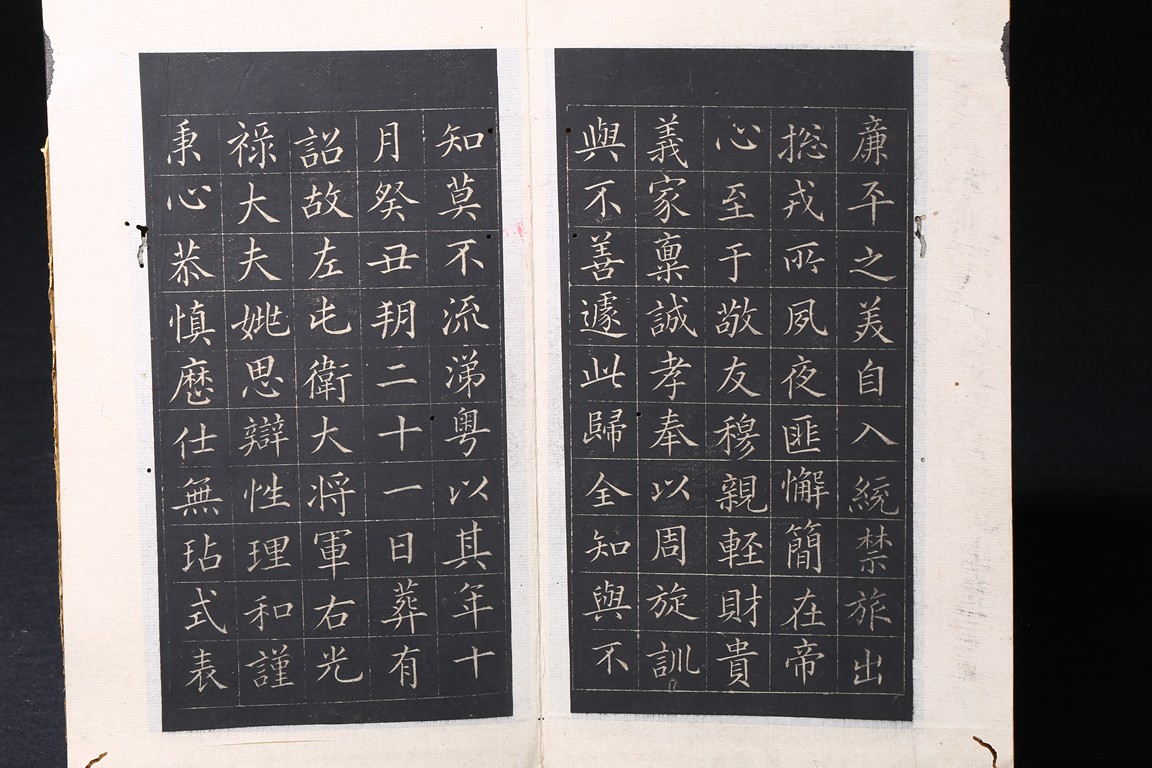 廉平之美自入統禁旅出
捴戎所夙夜匪懈簡在帝
心至于敬友穆親輕財貴
義家稟誠孝奉以周旋訓
與不善遽此歸全知與不
知莫不流涕粤以其年十
月癸丑朔二十一日葬有
詔故左屯衛大将軍右光
祿大夫姚思辯性理和謹
秉心恭慎歷仕無玷式表